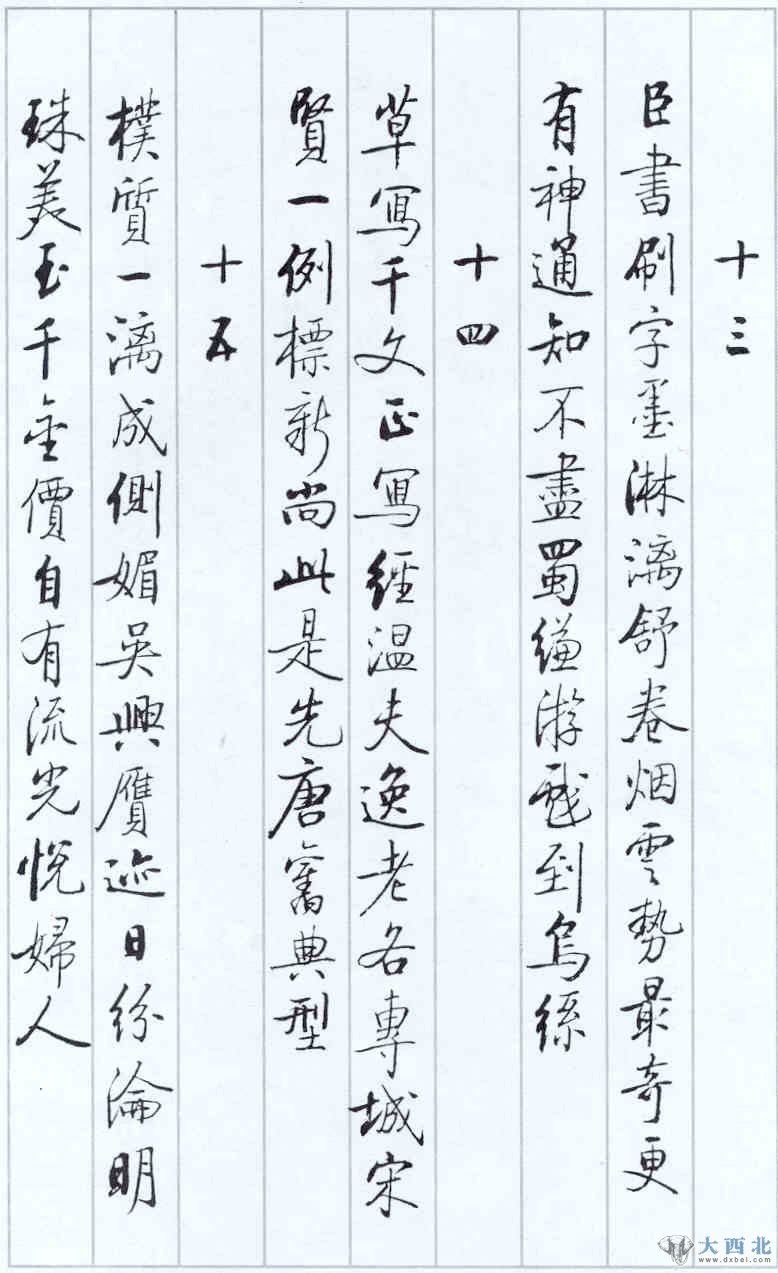 十三
臣書刷字墨淋漓舒卷烟雲勢最奇更
有神通知不盡蜀縑游戲到烏絲
十四
草寫千文正寫經温夫逸老各專城宋
賢一例標新尚此是先唐舊典型
十五
樸質一漓成側媚吳興贋迹日紛淪明
珠美玉千金價自有流光悅婦人
大西北
www.dxbei.com